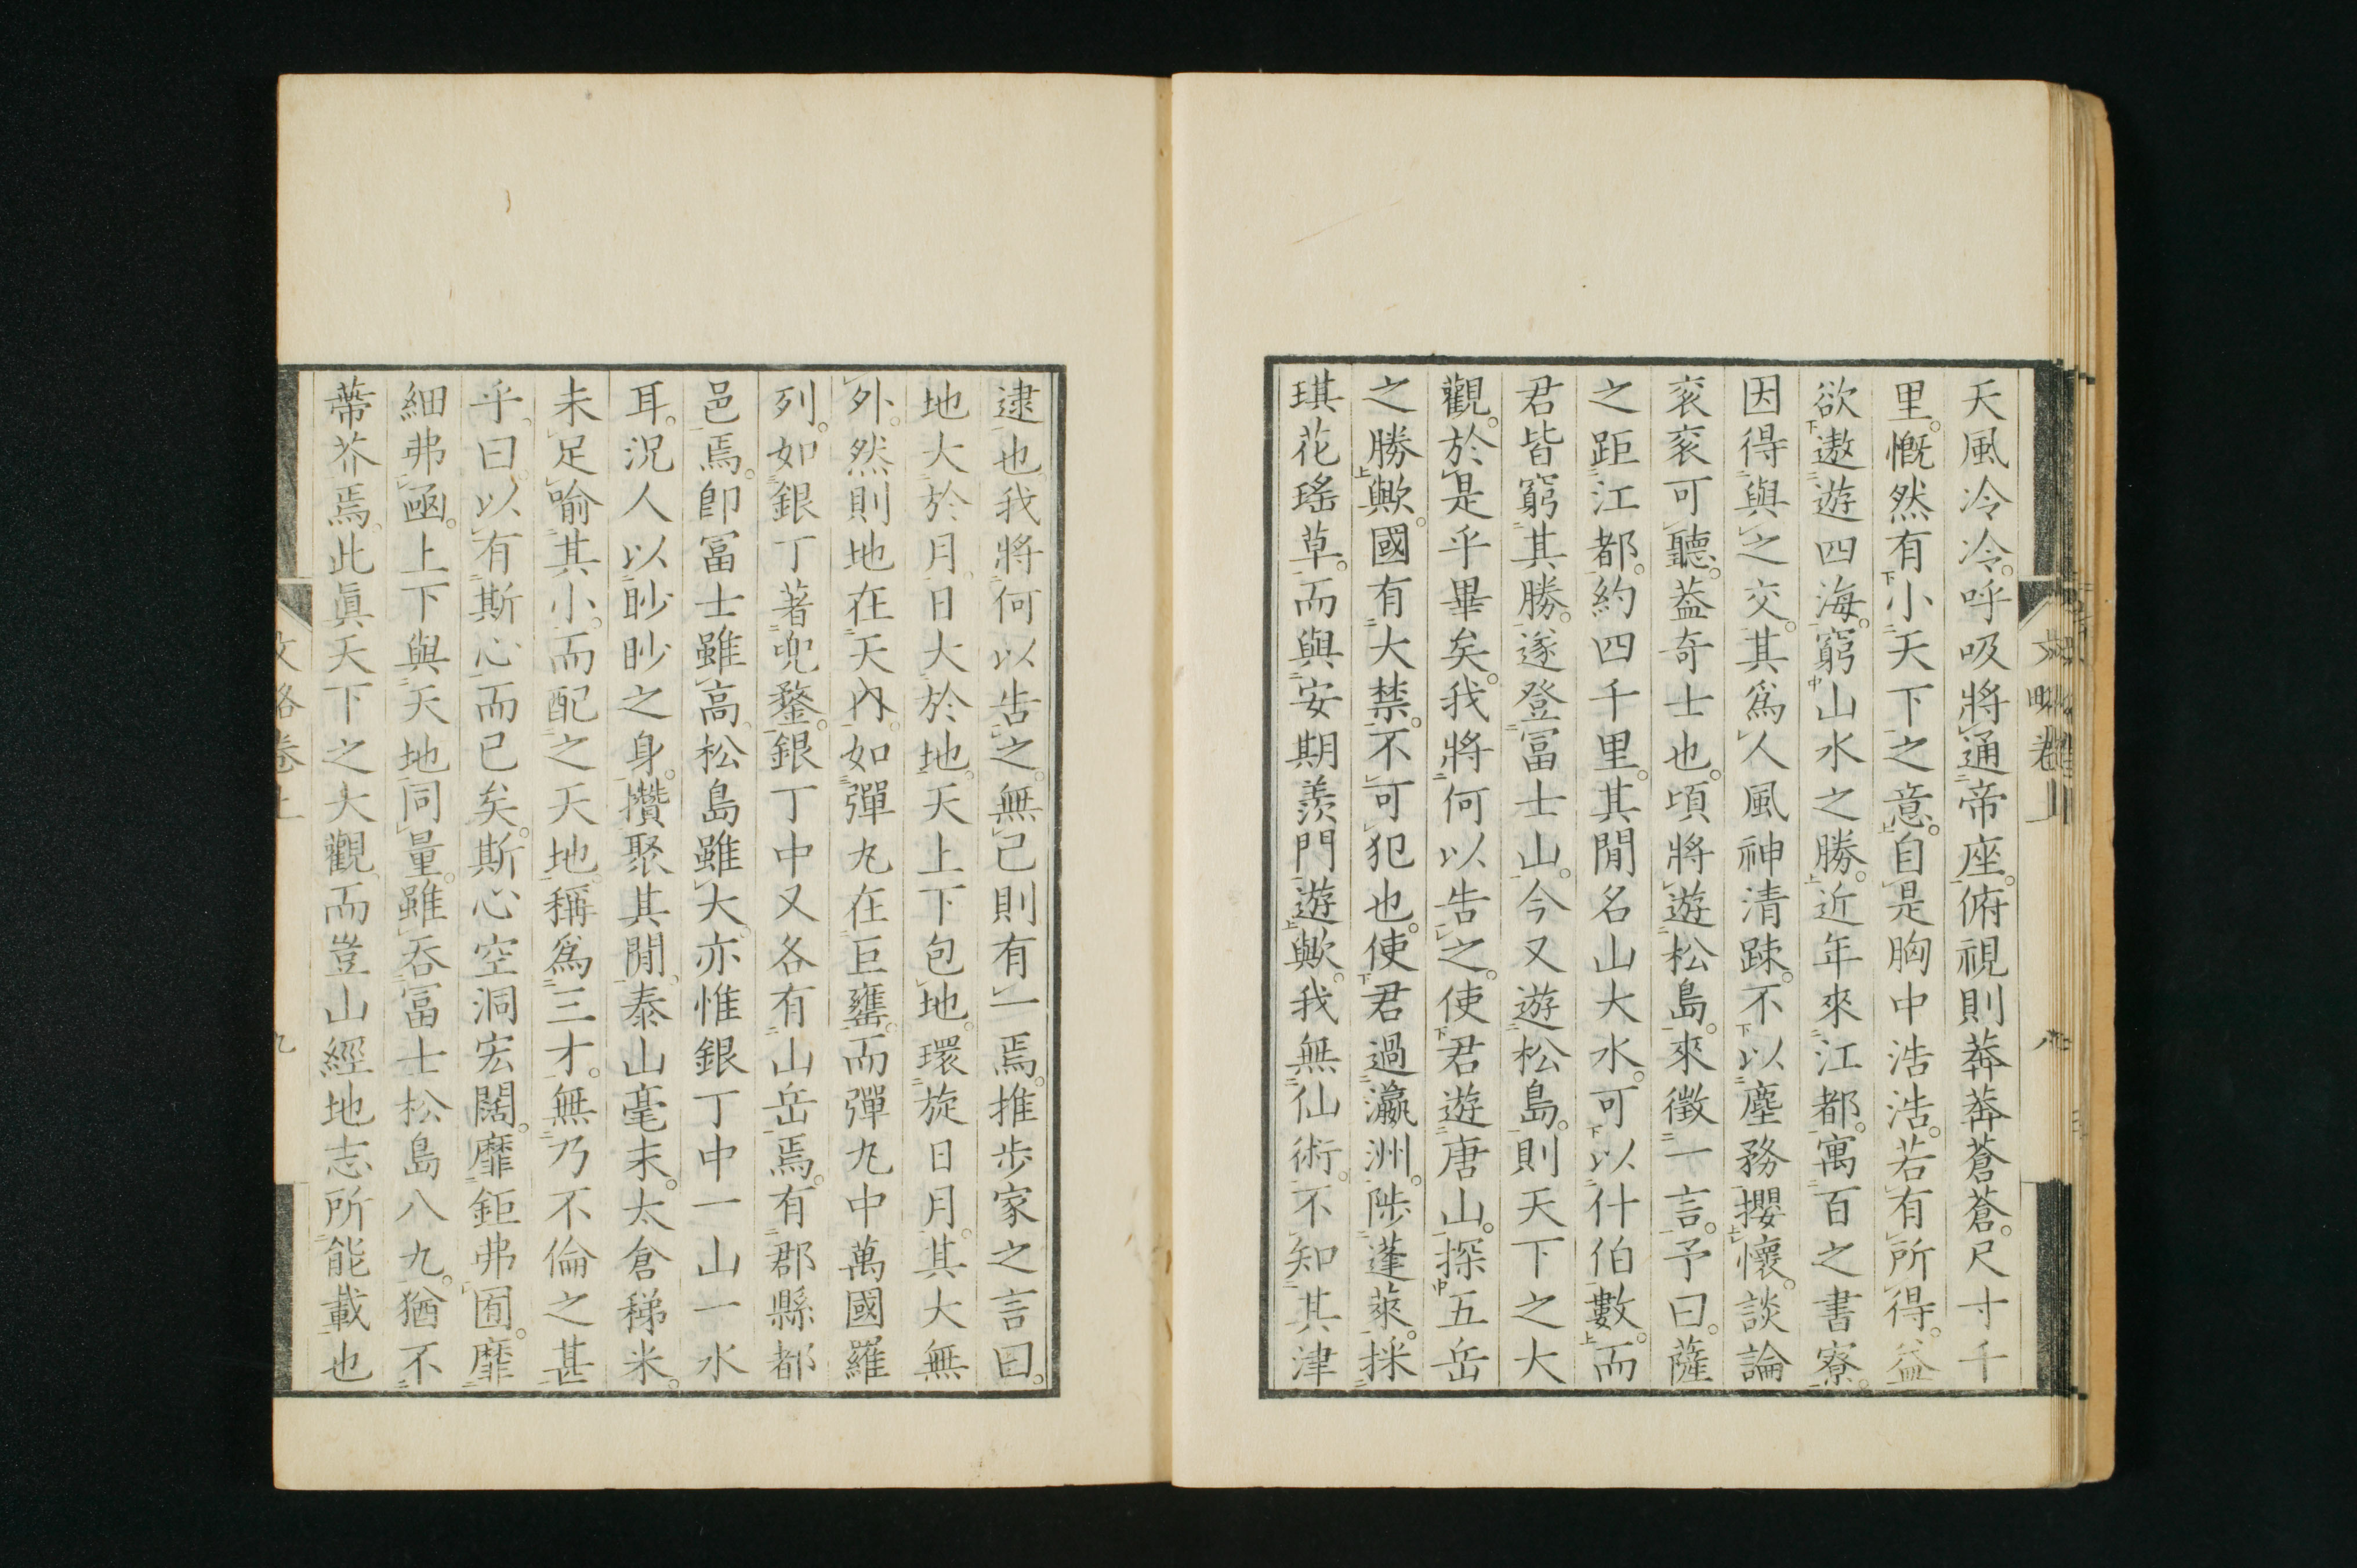 天風冷冷。呼吸將通帝座。俯視則莽莽蒼蒼。尺寸千
里。慨然有小天下之意。自是胸中浩浩。若有所得。益
欲遨遊四海。窮山水之勝。近年來江都。寓百之書寮。
因得與之交。其爲人風神清踈。不以塵務攖懷。談論
袞袞可聽。葢奇士也。頃將遊松島。來徵一言。予曰。薩
之距江都。約四千里。其閒名山大水。可以什伯數。而
君皆窮其勝。遂登冨士山。今又遊松島。則天下之大
觀。於是乎畢矣。我將何以告之。使君遊唐山。探五岳
之勝歟。國有大禁。不可犯也。使君過瀛洲。陟蓬萊。採
琪花瑤草。而與安期羨門遊歟。我無仙術。不知其津
逮也。我將何以告之。無已則有一焉。推步家之言曰。
地大於月。日大於地。天上下包地。環旋日月。其大無
外。然則地在天內。如彈丸在巨罋。而彈丸中萬國羅
列。如銀丁著兜鍪。銀丁中又各有山岳焉。有郡縣都
邑焉。卽冨士雖高。松島雖大。亦惟銀丁中一山一水
耳。況人以眇眇之身。攢聚其閒。泰山毫末。太倉稊米。
未足喻其小。而配之天地。稱爲三才。無乃不倫之甚
乎。曰。以有斯心而已矣。斯心空洞宏闊。靡鉅弗囿。靡
細弗凾。上下與天地同量。雖吞冨士松島八九。猶不
蔕芥焉。此眞天下之大觀。而豈山經地志所能載也
文略卷上
八
九